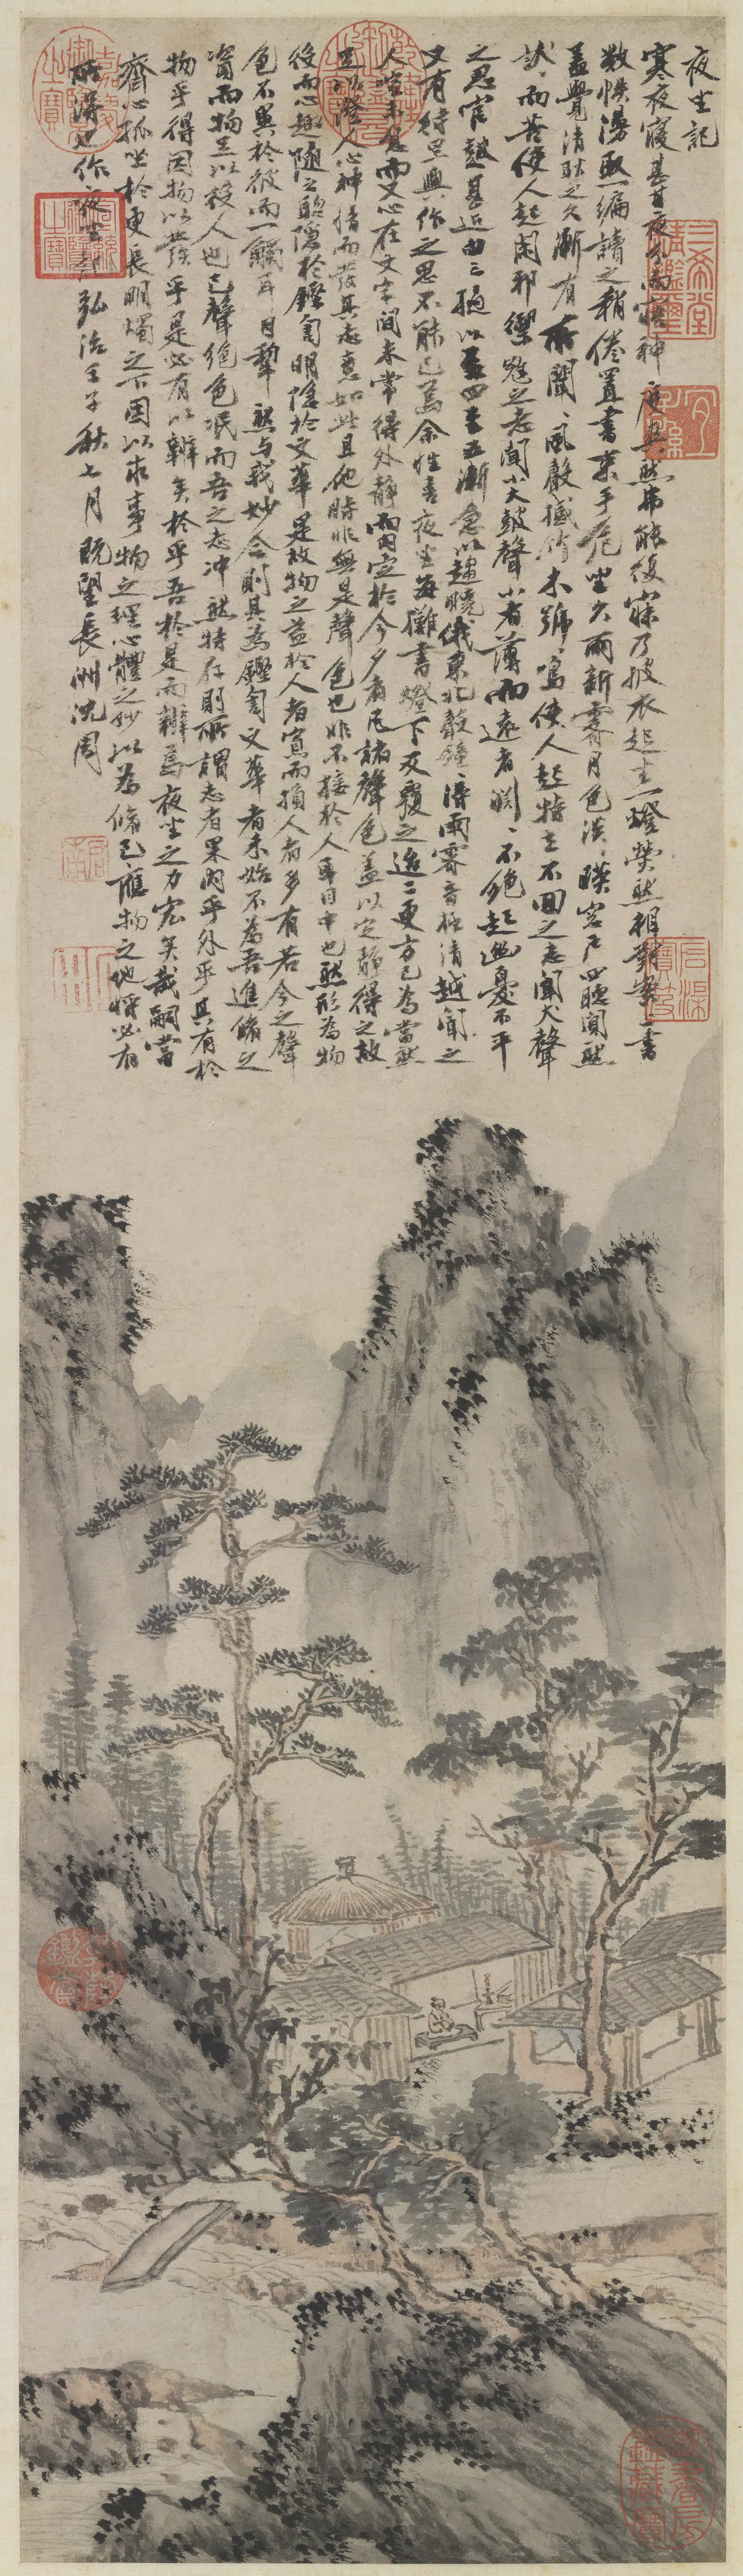 夜坐記
寒夜寢甚甘夜分而寤神度爽然弗能復寐乃披衣起坐一燈熒然相對案上書
數帙漫取一編讀之稍倦置書束手危坐久雨新霽月色淡々映窗戶四聽闃然
蓋覺清耿之久漸有所聞々風聲撼竹木號々鳴使人起特立不回之志聞犬聲
狀々而苦使人起閑邪禦寇之志聞小大鼓聲小者薄而遠者淵々不絕起幽憂不平
之思官鼓甚近由三撾以至四至五漸急以趨曉俄東北聲鐘々得雨霽音極清越聞之
又有待旦興作之思不能已焉余性喜夜坐每攤書燈下反覆之迨二更方已為當然
人喧未息而又心在文字間未常得外靜而內定於今夕者凡諸聲色蓋以定靜得之故
足以澄人心神情而發其志意如此且他時非無是聲色也非不接於人耳目中也然形為物
役而心趣隨之聰隱於鏗訇明隱於文華是故物之益於人者寡而損人者多有若今之聲
色不異於彼而一觸耳目犁然與我妙合則其為鏗訇文華者未始不為吾進脩之
資而物足以役人也已聲絕色泯而吾之志冲然特存則所謂志者果內乎外乎其有於
物乎得因物以發乎是必有以辨矣於乎吾於是而辨焉夜坐之力宏矣哉嗣當
齋心孤坐於更長明燭之下因以求事物之理心體之妙以為脩己應物之地將必有
所得也作夜坐記弘治壬子秋七月既望長洲沈周
三希堂精鑑璽
宜子孫
乾隆御覽之寶
嘉慶御覽之寶
乾隆鑑賞
石渠寶笈
啟南
御書房鑑藏寶